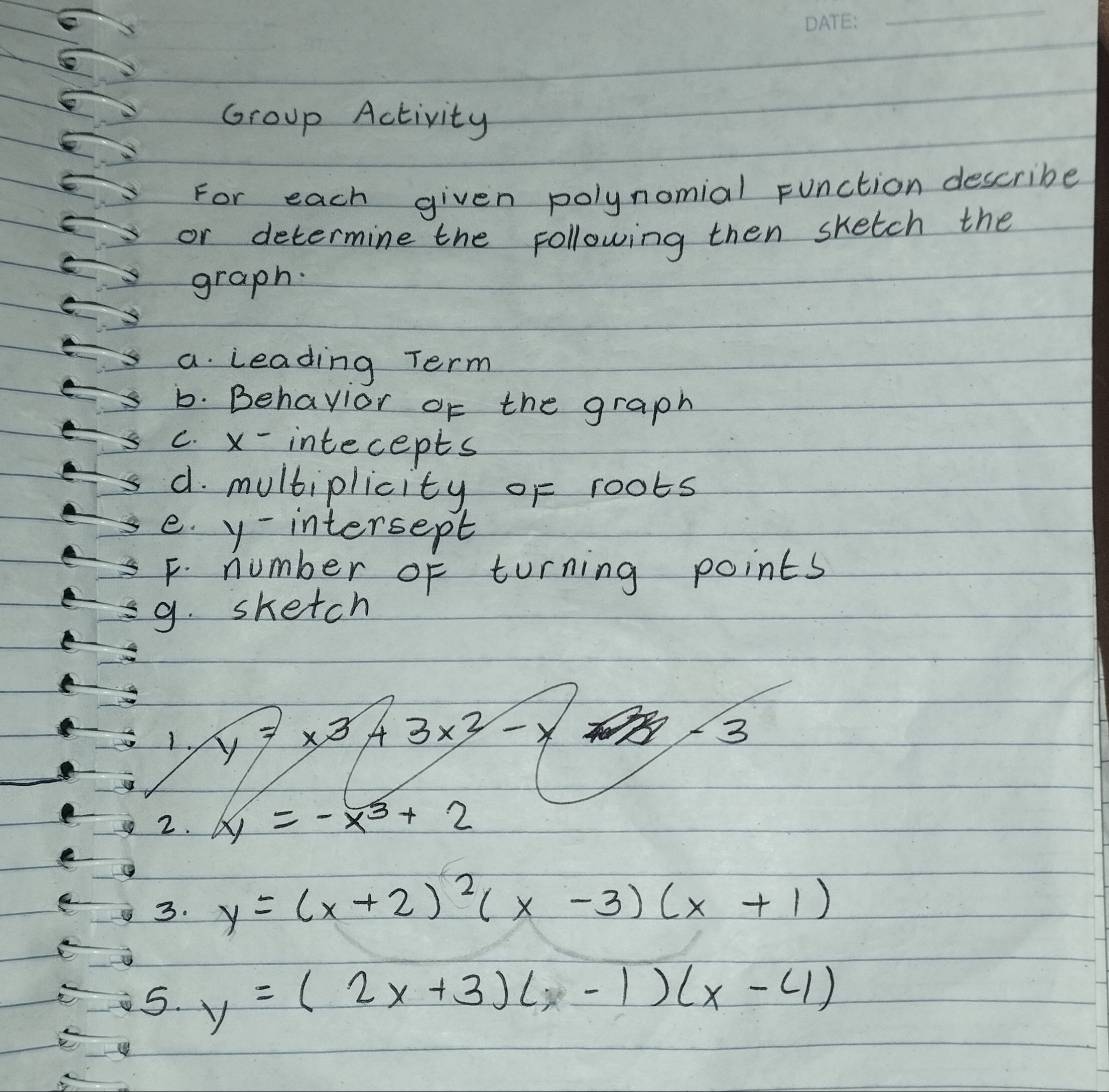 DATE:
Group Activity
For each given polynomial Function describe
or determine the Following then sketch the
graph.
a. Leading Term
b. Behavior OF the graph
c. x - intecepts
d. multiplicity OF roots
e. y - intersept
F. number OF turning points
g. sketch
1. y = x3 + 3x2 - x - 3
2. y = -x3 + 2
3. y = (x +2)²( x -3) (x +1)
5. y = ( 2x +3)(x - 1)(x - 4)